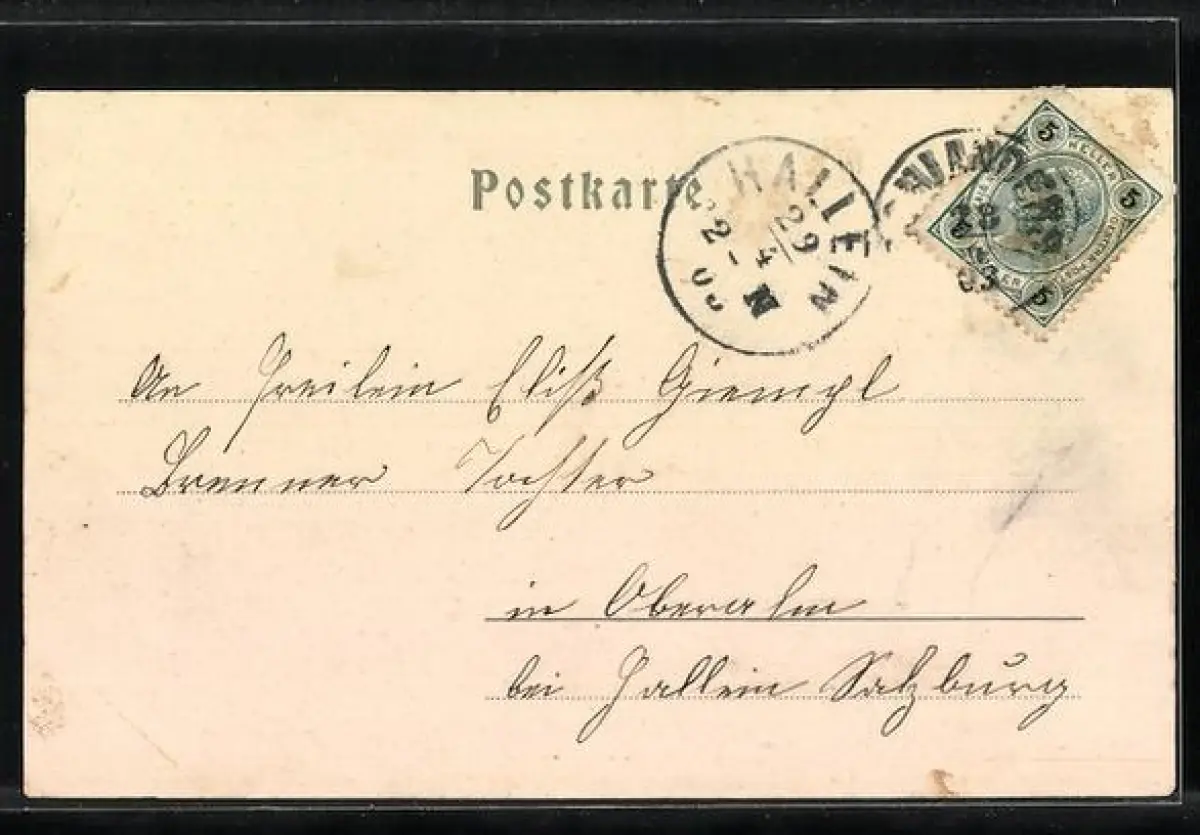 Postkarte
HALLEIN
29/4
5 HELLER 5
5 5
An Freilein Eliß Giempl
Brenner Tochter
in Oberalm
bei Hallein Salzburg